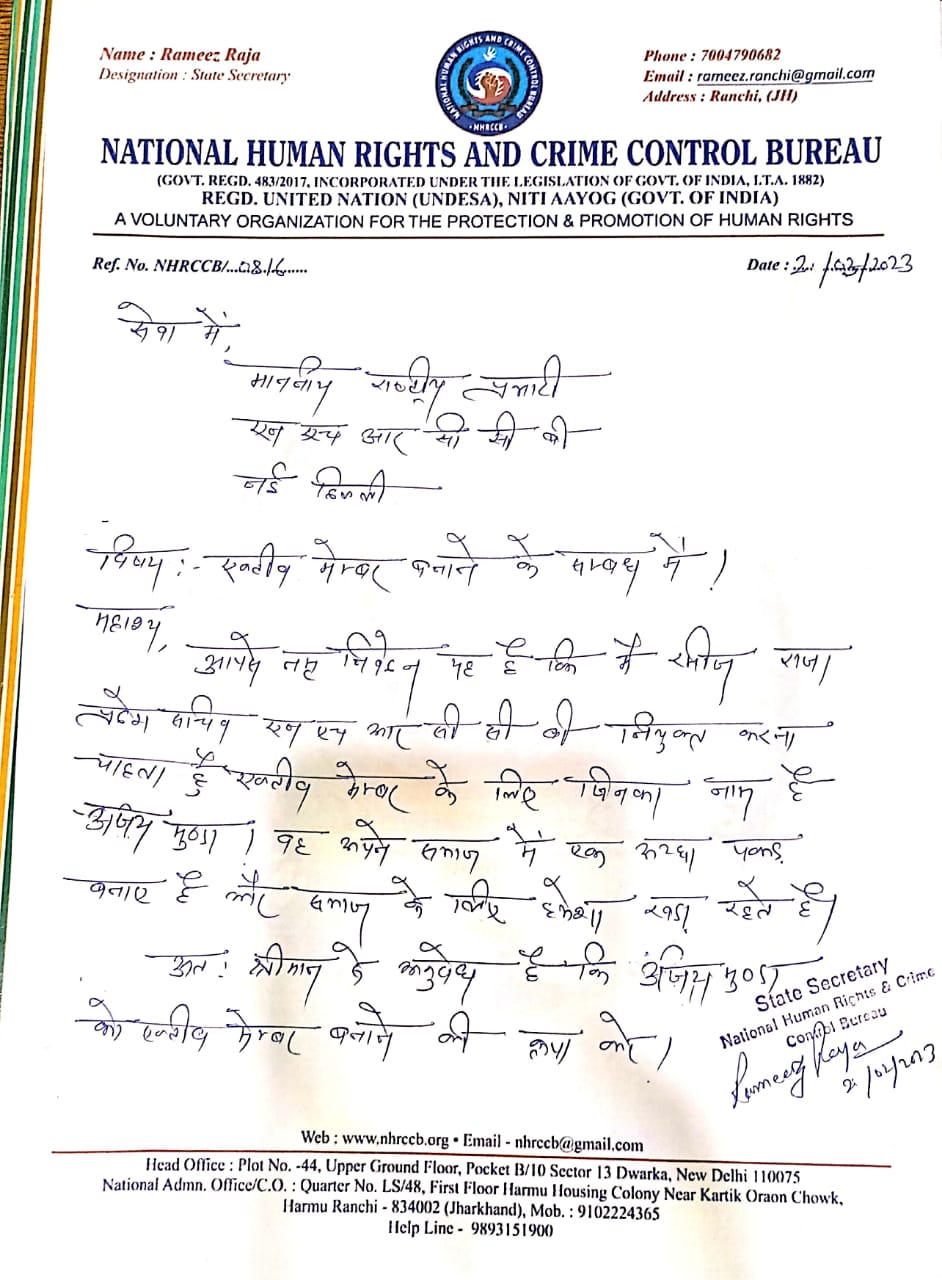 Name : Rameez Raja
Designation : State Secretary
NATIONAL HUMAN RIGHTS AND CRIME CONTROL BUREAU
· NHRCCB ·
Phone : 7004790682
Email : rameez.ranchi@gmail.com
Address : Ranchi, (JH)
NATIONAL HUMAN RIGHTS AND CRIME CONTROL BUREAU
(GOVT. REGD. 483/2017, INCORPORATED UNDER THE LEGISLATION OF GOVT. OF INDIA, I.T.A. 1882)
REGD. UNITED NATION (UNDESA), NITI AAYOG (GOVT. OF INDIA)
A VOLUNTARY ORGANIZATION FOR THE PROTECTION & PROMOTION OF HUMAN RIGHTS
Ref. No. NHRCCB/...
Date : 2/02/2023
सेवा में,
माननीय राष्ट्रीय प्रभारी
एन एच आर सी सी बी
नई दिल्ली
विषय :- एक्टीव मेम्बर बनाने के सम्बंध में।
महाशय,
आपसे नम्र निवेदन यह है कि मैं रमीज राजा
प्रदेश सचिव एन एच आर सी सी बी नियुक्त करना
चाहता हूँ एक्टीव मेम्बर के लिए जिनका नाम है
मुण्डा। वह अपने समाज में एक अच्छा पकड़
बनाए है और समाज के लिए हमेशा खड़ा रहते है।
अतः श्रीमान से अनुरोध है कि मुण्डा
को एक्टीव मेम्बर बनाने की कृपा करे।
State Secretary
National Human Rights & Crime
Control Bureau
Rameez Raja
2/02/2023
Web : www.nhrccb.org • Email - nhrccb@gmail.com
Head Office : Plot No. -44, Upper Ground Floor, Pocket B/10 Sector 13 Dwarka, New Delhi 110075
National Admn. Office/C.O. : Quarter No. LS/48, First Floor Harmu Housing Colony Near Kartik Oraon Chowk,
Harmu Ranchi - 834002 (Jharkhand), Mob. : 9102224365
Help Line - 9893151900